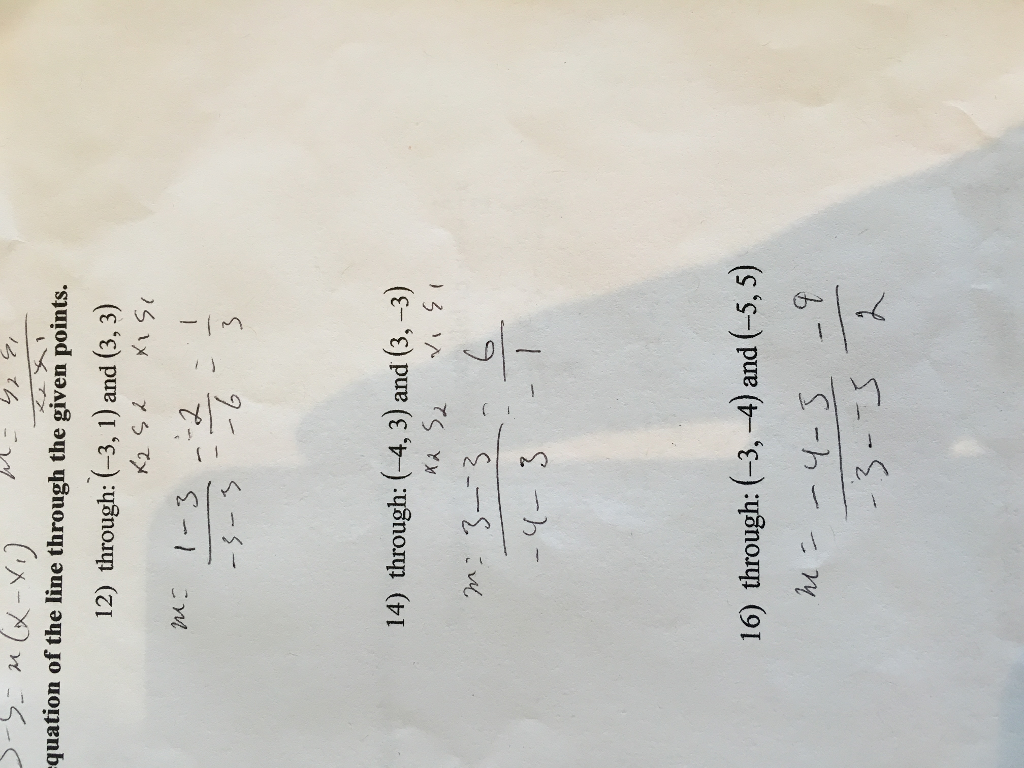 y-y= m(x-x1) m= y2 y1
x2 x1
equation of the line through the given points.
12) through: (−3, 1) and (3, 3)
x2 y2 x1 y1
m= 1-3 = -2 = 1
-3-3 -6 3
14) through: (−4, 3) and (3, −3)
x2 y2 x1 y1
m= 3--3 = 6
-4-3 -1
16) through: (−3, −4) and (−5, 5)
m= -4-5 -9
-3--5 2